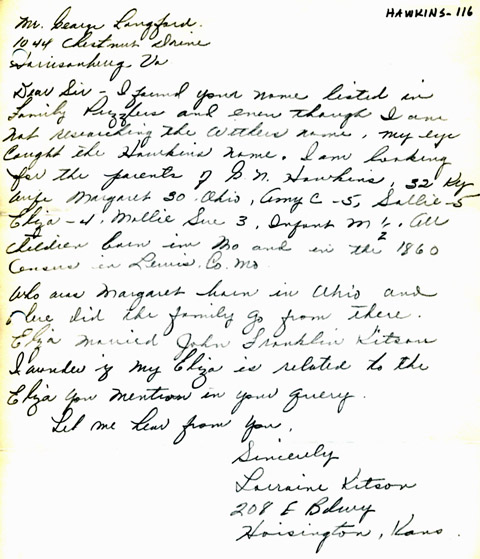 HAWKINS-116
Mr. George Langford.
1044 Chestnut Drive
Harrisonburg Va
Dear Sir - I found your name listed in
Family Puzzlers and even though I am
not researching the Withers name, my eye
caught the Hawkins name. I am looking
for the parents of G N. Hawkins, 32 Ky
wife Margaret 30 Ohio, Amy C -5, Sallie -5
Eliza -4, Mollie Sue 3, Infant M ½. All
children born in Mo and in the 1860
Census in Lewis. Co. Mo.
Who was Margaret born in Ohio and
where did the family go from there.
Eliza married John Franklin Kitson
I wonder if my Eliza is related to the
Eliza you mention in your query.
Let me hear from you.
Sincerely
Lorraine Kitson
208 E Bdwy
Hoisington, Kans.